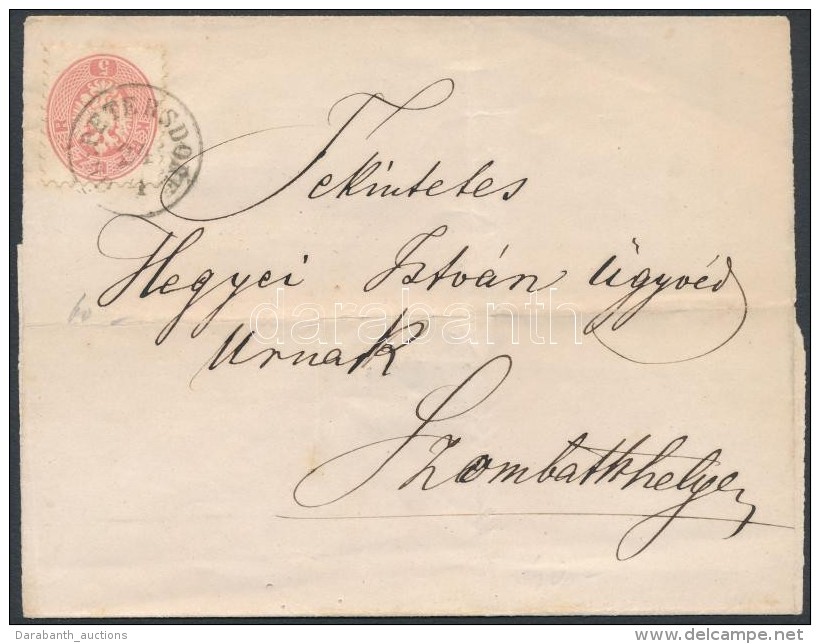 5
PETERSDORF
Tekintetes
Hegyei István ügyvéd
Urnak
Szombatthelyen
darabanth
Darabanth_auctions
delcampe.net